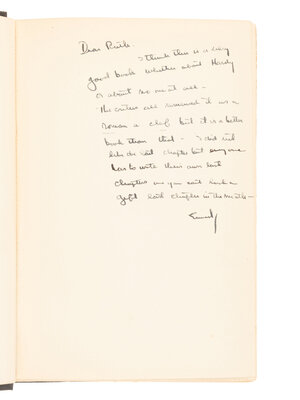 Dear
I think this is a very
good book whether about Hardy
or about no one at all -
The critics all reviewed it as a
roman a clef but it is a better
book than that - I did not
like the last chapter but everyone
has to write their own last
chapters
last chapter in the